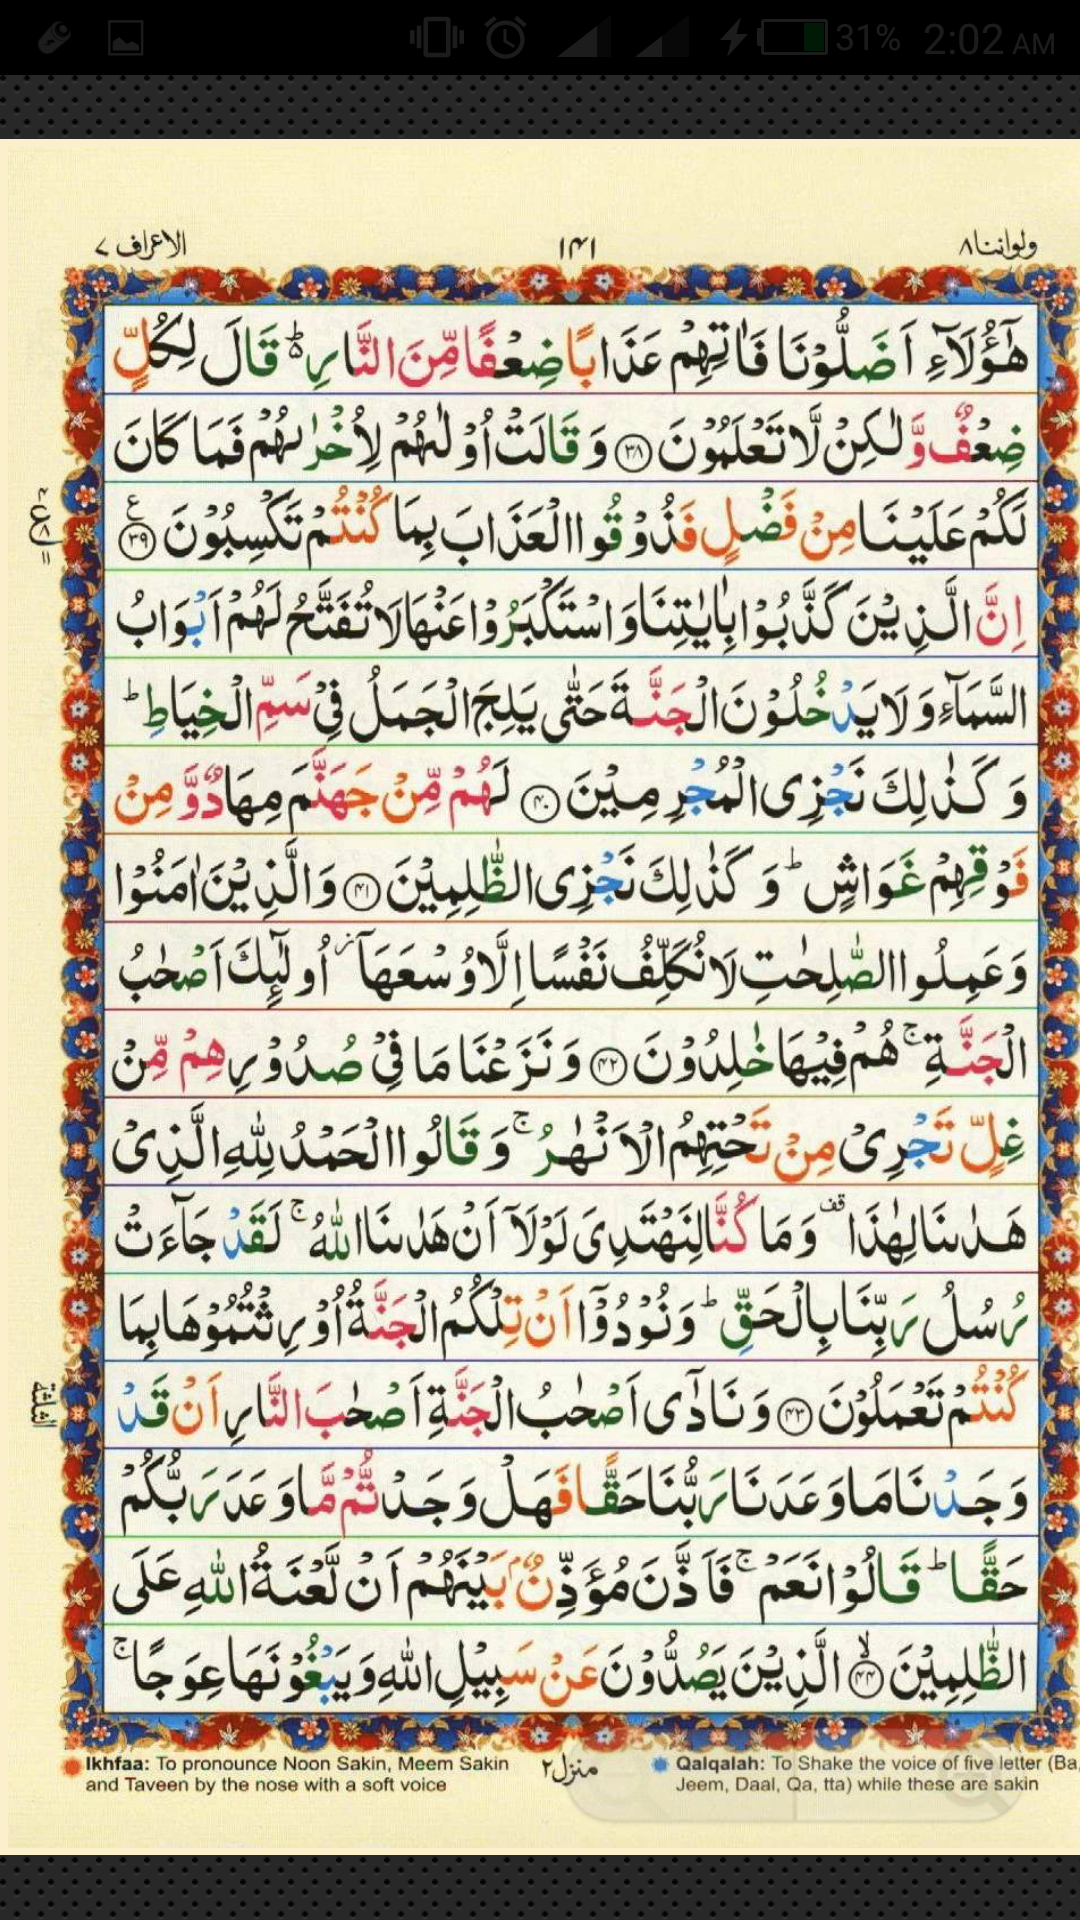 31% 2:02 AM
ولواننا ٨ ١٤١ الاعراف ٧
هٰٓؤُلَآءِ اَضَلُّوْنَا فَاٰتِهِمْ عَذَابًا ضِعْفًا مِّنَ النَّارِ ؕ۬ قَالَ لِكُلٍّ
ضِعْفٌ وَّلٰكِنْ لَّا تَعْلَمُوْنَ ﴿۳۸﴾ وَقَالَتْ اُوْلٰىهُمْ لِاُخْرٰىهُمْ فَمَا كَانَ
لَكُمْ عَلَيْنَا مِنْ فَضْلٍ فَذُوْقُوا الْعَذَابَ بِمَا كُنْتُمْ تَكْسِبُوْنَ ﴿۳۹﴾ ع
اِنَّ الَّذِيْنَ كَذَّبُوْا بِاٰيٰتِنَا وَاسْتَكْبَرُوْا عَنْهَا لَا تُفَتَّحُ لَهُمْ اَبْوَابُ
السَّمَآءِ وَلَا يَدْخُلُوْنَ الْجَنَّةَ حَتّٰى يَلِجَ الْجَمَلُ فِيْ سَمِّ الْخِيَاطِ ؕ
وَكَذٰلِكَ نَجْزِى الْمُجْرِمِيْنَ ﴿۴۰﴾ لَهُمْ مِّنْ جَهَنَّمَ مِهَادٌ وَّمِنْ
فَوْقِهِمْ غَوَاشٍ ؕ وَكَذٰلِكَ نَجْزِى الظّٰلِمِيْنَ ﴿۴۱﴾ وَالَّذِيْنَ اٰمَنُوْا
وَعَمِلُوا الصّٰلِحٰتِ لَا نُكَلِّفُ نَفْسًا اِلَّا وُسْعَهَاۤ ؗ اُولٰٓئِكَ اَصْحٰبُ
الْجَنَّةِ ۚ هُمْ فِيْهَا خٰلِدُوْنَ ﴿۴۲﴾ وَنَزَعْنَا مَا فِيْ صُدُوْرِهِمْ مِّنْ
غِلٍّ تَجْرِيْ مِنْ تَحْتِهِمُ الْاَنْهٰرُ ۚ وَقَالُوا الْحَمْدُ لِلّٰهِ الَّذِيْ
هَدٰىنَا لِهٰذَا ۟قف وَمَا كُنَّا لِنَهْتَدِيَ لَوْلَاۤ اَنْ هَدٰىنَا اللّٰهُ ۚ لَقَدْ جَآءَتْ
رُسُلُ رَبِّنَا بِالْحَقِّ ؕ وَنُوْدُوْۤا اَنْ تِلْكُمُ الْجَنَّةُ اُوْرِثْتُمُوْهَا بِمَا
كُنْتُمْ تَعْمَلُوْنَ ﴿۴۳﴾ وَنَادٰۤى اَصْحٰبُ الْجَنَّةِ اَصْحٰبَ النَّارِ اَنْ قَدْ
وَجَدْنَا مَا وَعَدَنَا رَبُّنَا حَقًّا فَهَلْ وَجَدْتُّمْ مَّا وَعَدَ رَبُّكُمْ
حَقًّا ؕ قَالُوْا نَعَمْ ۚ فَاَذَّنَ مُؤَذِّنٌۢ بَيْنَهُمْ اَنْ لَّعْنَةُ اللّٰهِ عَلَى
الظّٰلِمِيْنَ ﴿ۙ۴۴﴾ الَّذِيْنَ يَصُدُّوْنَ عَنْ سَبِيْلِ اللّٰهِ وَيَبْغُوْنَهَا عِوَجًا ۚ
الثلثة
Ikhfaa: To pronounce Noon Sakin, Meem Sakin
and Taveen by the nose with a soft voice
منزل ٢
Qalqalah: To Shake the voice of five letter (Ba,
Jeem, Daal, Qa, tta) while these are sakin